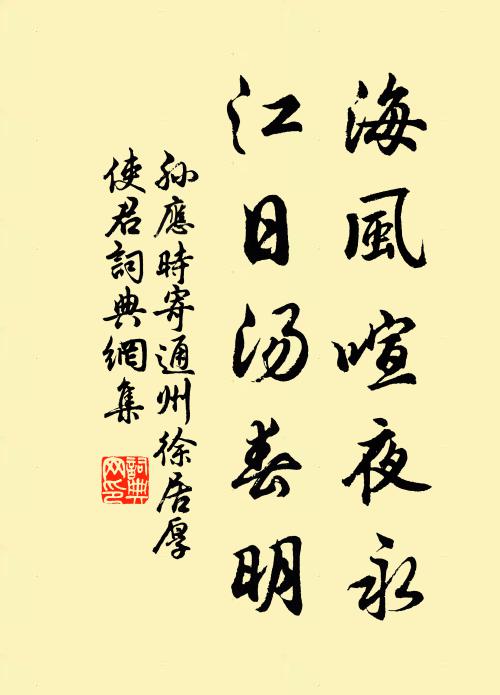 海風喧夜永
江日汤春明
孙應時寄通州徐居厚
使君詞典網集
詞典网印